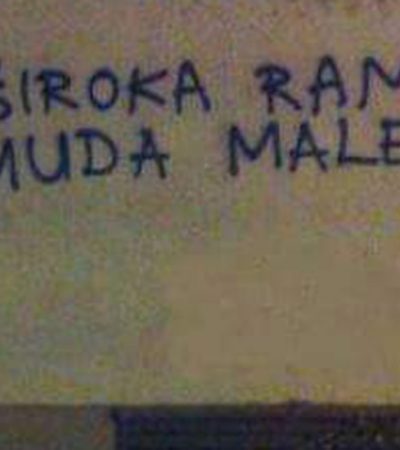 ŠIROKA RAM
MUDA MALE